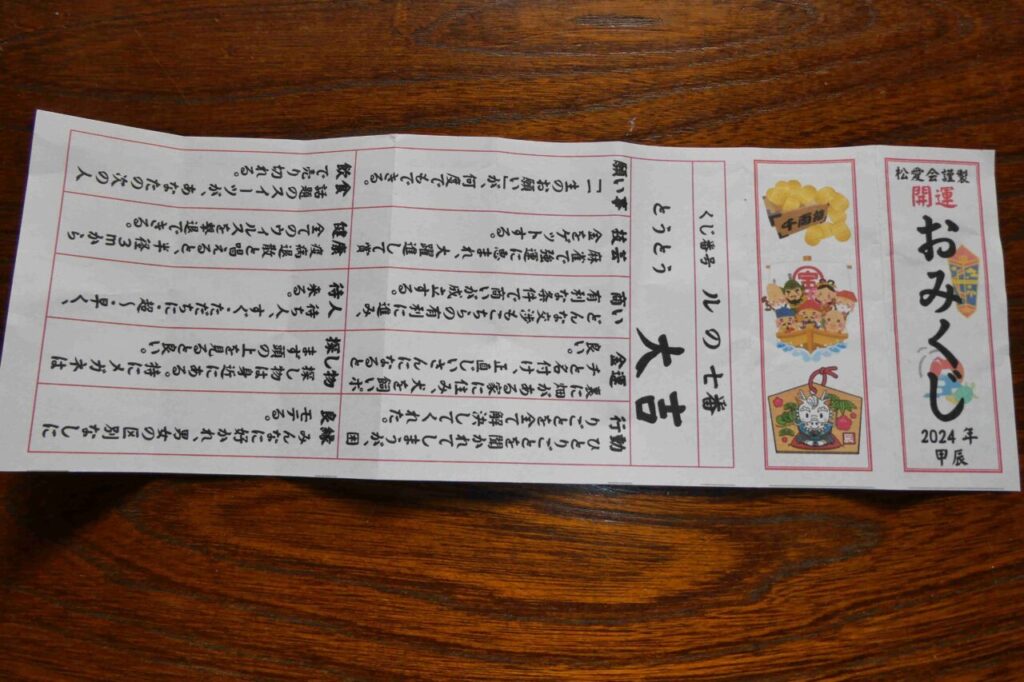 謹製
開運
おみくじ
2024年
甲辰
千両箱
宝
くじ番号 ルの七番
とうとう 大吉
願い事
「一生のお願い」が、何度でもできる。
技芸
麻雀で強運に恵まれ、大躍進して賞
金をゲットする。
商い
どんな交渉もこちらの有利に進み、
有利な条件で商いが成立する。
金運
裏に畑がある家に住み、犬を飼いポ
チと名付け、正直じいさんになると
良い。
行動
ひとりごとを聞かれてしまうが、困
りごとを全て解決してくれた。
飲食
話題のスイーツが、あなたの次の人
で売り切れる。
健康
疫病退散と唱えると、半径3mから
全てのウイルスを撃退できる。
待人
待ち人、すぐ、ただちに、超～早く、
来る。
探し物
探し物は身近にある。特にメガネは
まず頭の上を見ると良い。
良縁
みんなに好かれ、男女の区別なしに
モテる。